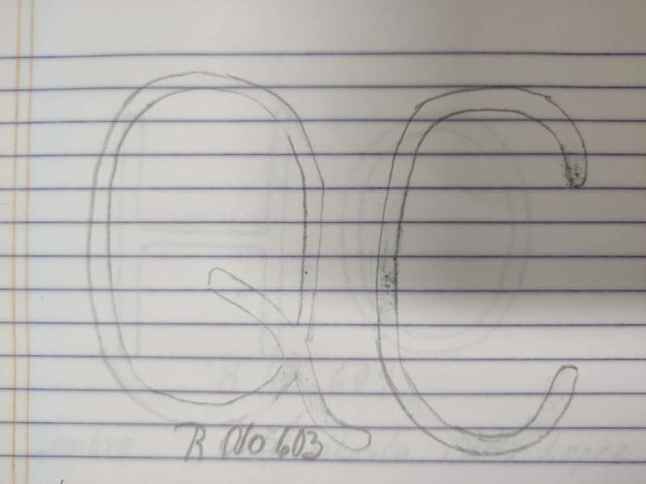 QC
R No 603